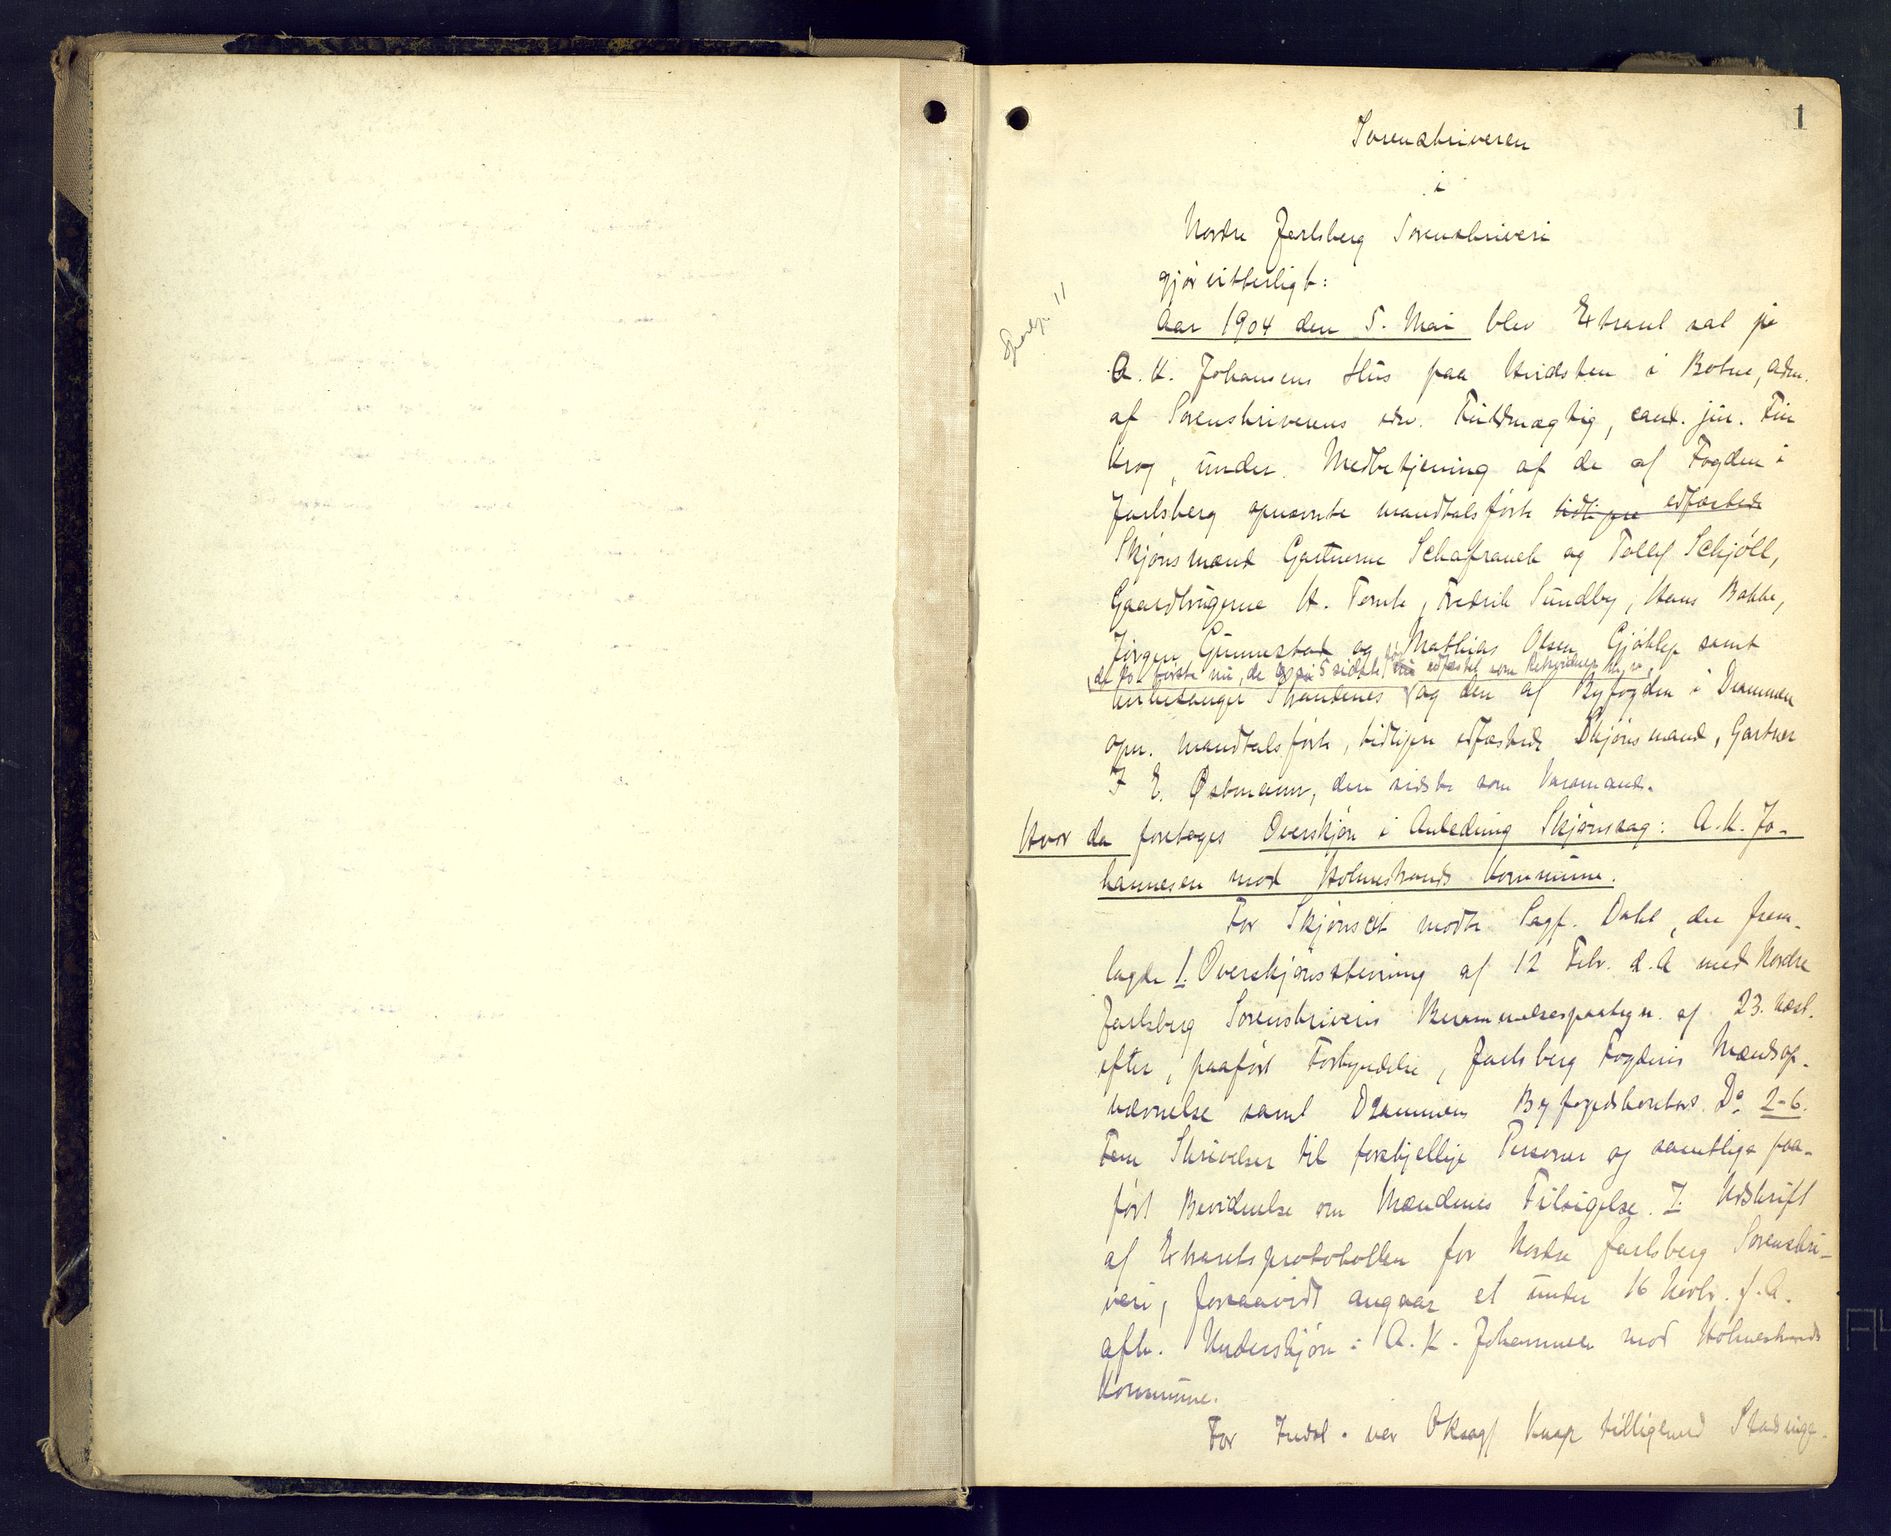 1
Sorenskriveren
i
Nordre Jarlsberg Sorenskriveri
gjør vitterligt:
Aar 1904 den 5. Mai blev Extraret sat på
A. K. Johansens Hus paa Hvidsten i Botne, adm.
af Sorenskriverens edsv. Fuldmægtig, cand. jur. Finn
Krog, under Medbetjening af de af Fogden i
Jarlsberg opnævnte mandtalsførte tidligere edfæstede
Skjønsmænd Gartnerne Schafranek og Tollef Schjøll,
Gaardbrugerne H. Tomte, Fredrik Sundby, Hans Bakke,
Jørgen Gunnestad og Mathias Olsen Gjøklep samt
de to første nu, de 5 sidste, edfæstet som
Kirkesanger Strandenes og den af Byfogden i Drammen
opn. mandtalsførte, tidligere edfæstede Skjønsmand, Gartner
F. E. Østmann, den sidste som Varamand.
Hvor da foretoges Overskjøn i Anledning Skjønssag: A. K. Jo-
hannesen mod Holmestrands Kommune.
For Skjønscit mødte Sagf. Dahl, der frem-
lagde 1. Overskjønsstevning af 12 Febr. d. A med Nordre
Jarlsberg Sorenskriveris Berammelsespaategn. af 23. næst.
efter, paaført Forkyndelse, Jarlsberg Fogderis Mændsop-
nævnelse samt Drammens Byfogedkontors Do 2-6.
Fem Skrivelser til forskjellige Personer og samtlige paa-
ført Bevidnelse om Mændenes Tilsigelse. 7. Udskrift
af Extraretsprotokollen for Nordre Jarlsberg Sorenskri-
veri, forsaavidt angaar et under 16 Novbr. f. A.
afh. Underskjøn: A. K. Johannesen mod Holmestrands
Kommune.
For Indst. var Oksagf Knap tilligemed Stadsinge-